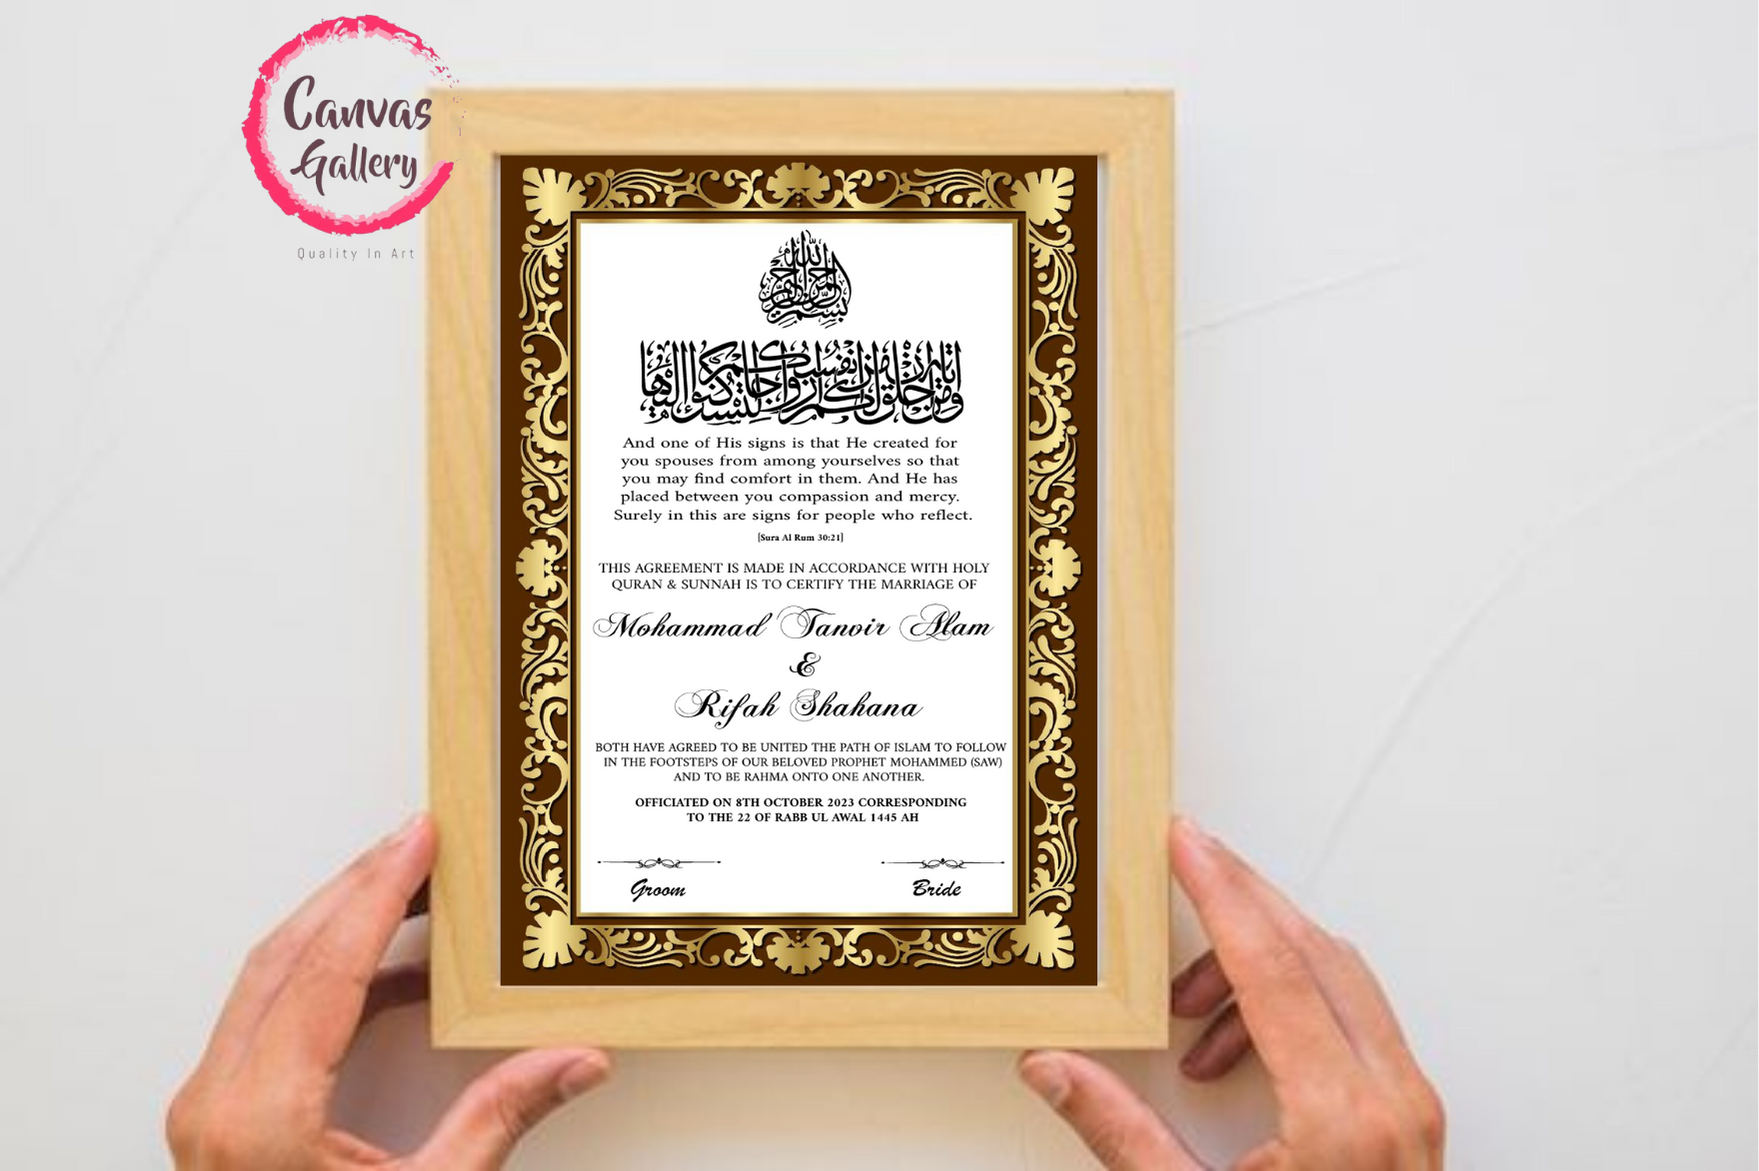 Canvas
Gallery
Quality In Art
بسم الله الرحمن الرحيم
ومن آياته أن خلق لكم من أنفسكم أزواجا لتسكنوا إليها
And one of His signs is that He created for
you spouses from among yourselves so that
you may find comfort in them. And He has
placed between you compassion and mercy.
Surely in this are signs for people who reflect.
[Sura Al Rum 30:21]
THIS AGREEMENT IS MADE IN ACCORDANCE WITH HOLY
QURAN & SUNNAH IS TO CERTIFY THE MARRIAGE OF
Mohammad Tanvir Alam
&
Rifah Shahana
BOTH HAVE AGREED TO BE UNITED THE PATH OF ISLAM TO FOLLOW
IN THE FOOTSTEPS OF OUR BELOVED PROPHET MOHAMMED (SAW)
AND TO BE RAHMA ONTO ONE ANOTHER.
OFFICIATED ON 8TH OCTOBER 2023 CORRESPONDING
TO THE 22 OF RABB UL AWAL 1445 AH
Groom Bride